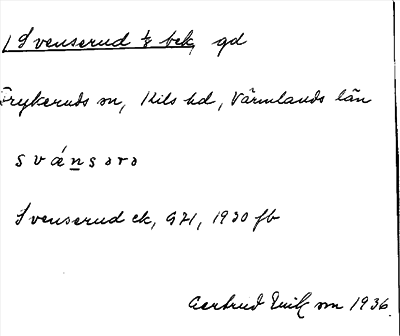 Svenserud 1/8 bek, gd
Frykeruds sn, Kils hd, Värmlands län
s v ǽ n s ə r ə
Svenserud ek, GH, 1930 fb
Gertrud Erikson 1936.